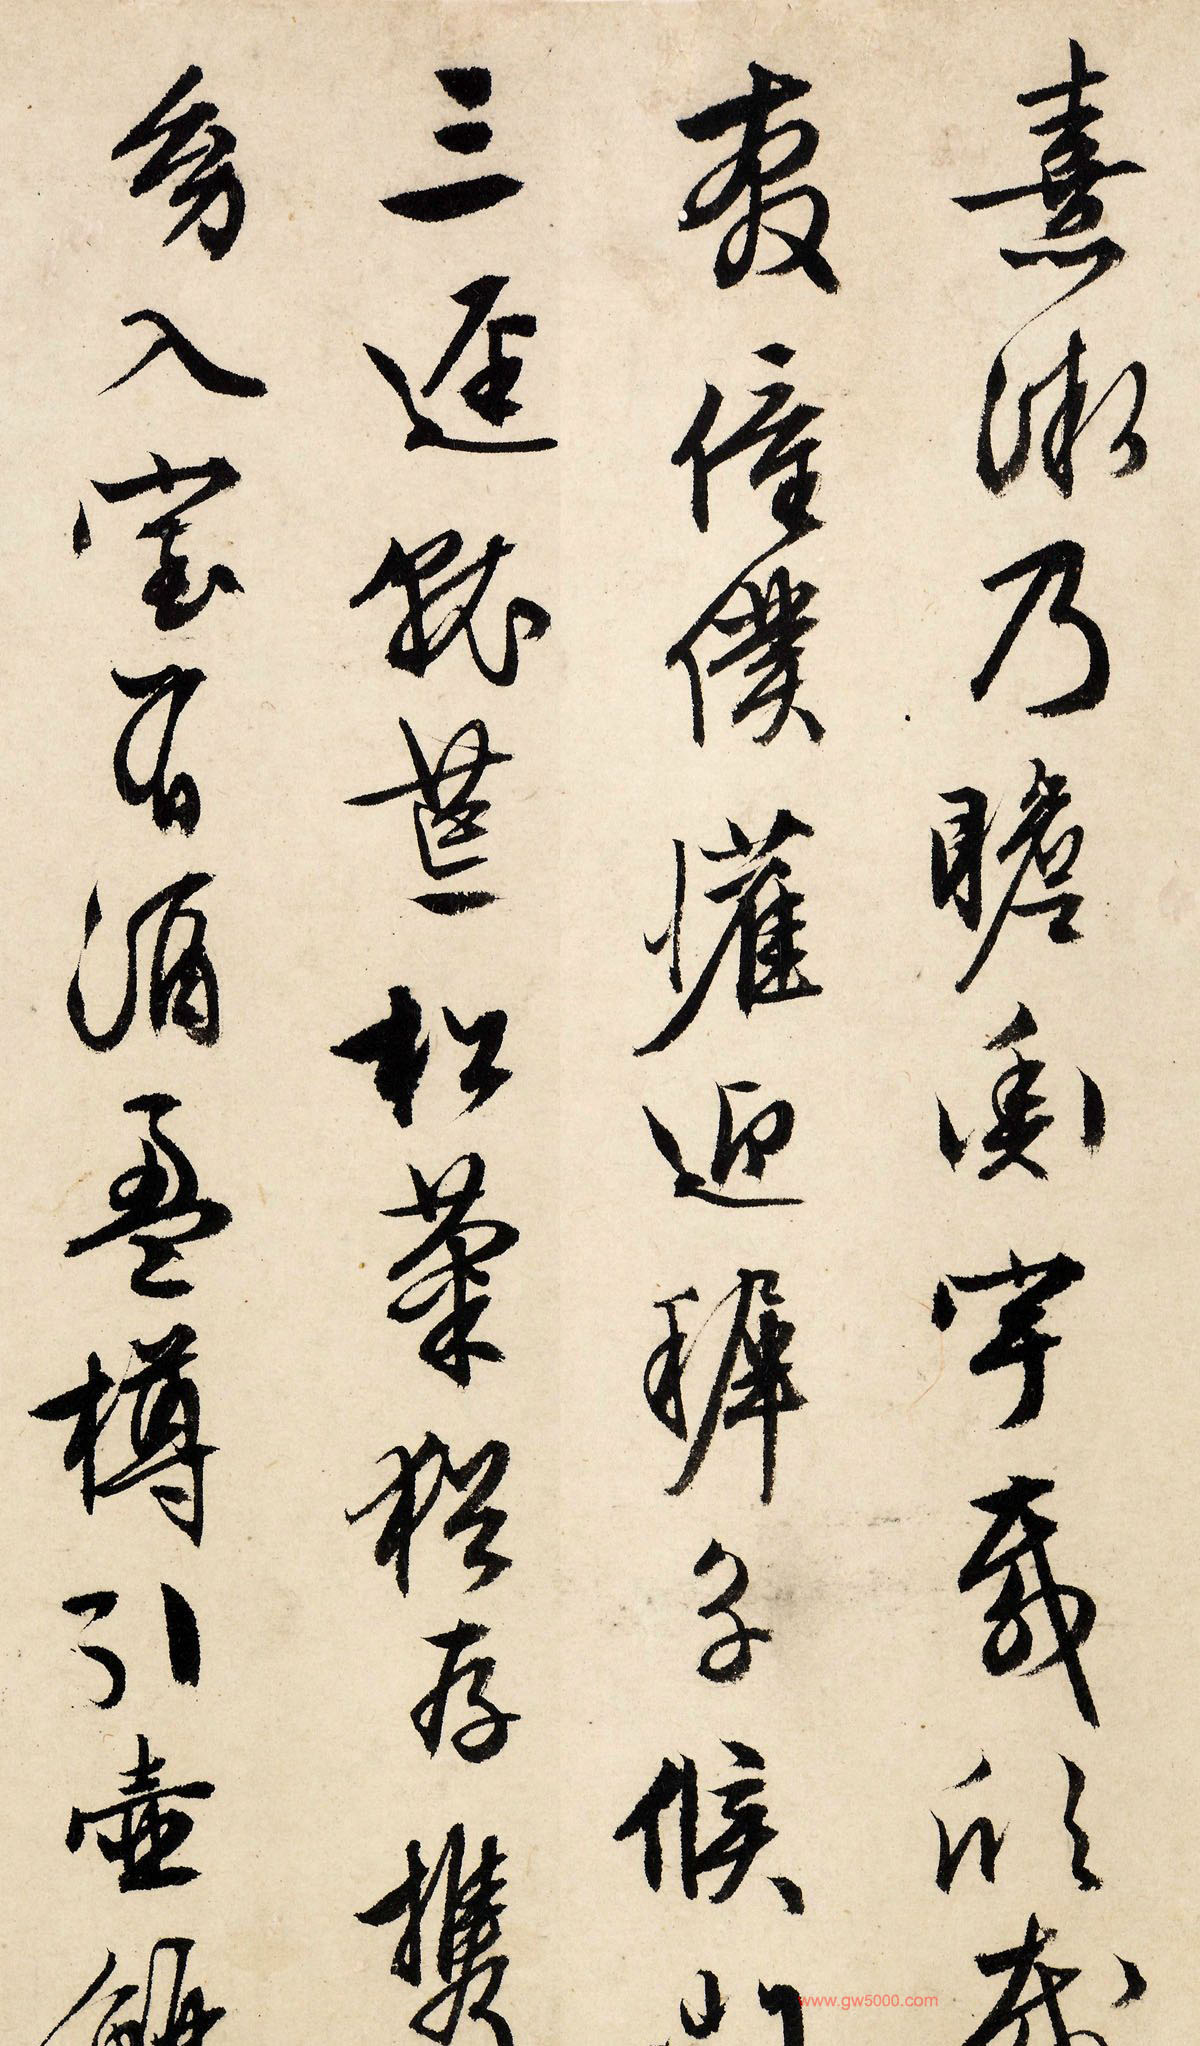 熹微乃瞻衡宇載欣載
奔僮僕懽迎稚子候門
三逕就荒松菊猶存攜
幼入室有酒盈樽引壺觴
www.gw5000.com